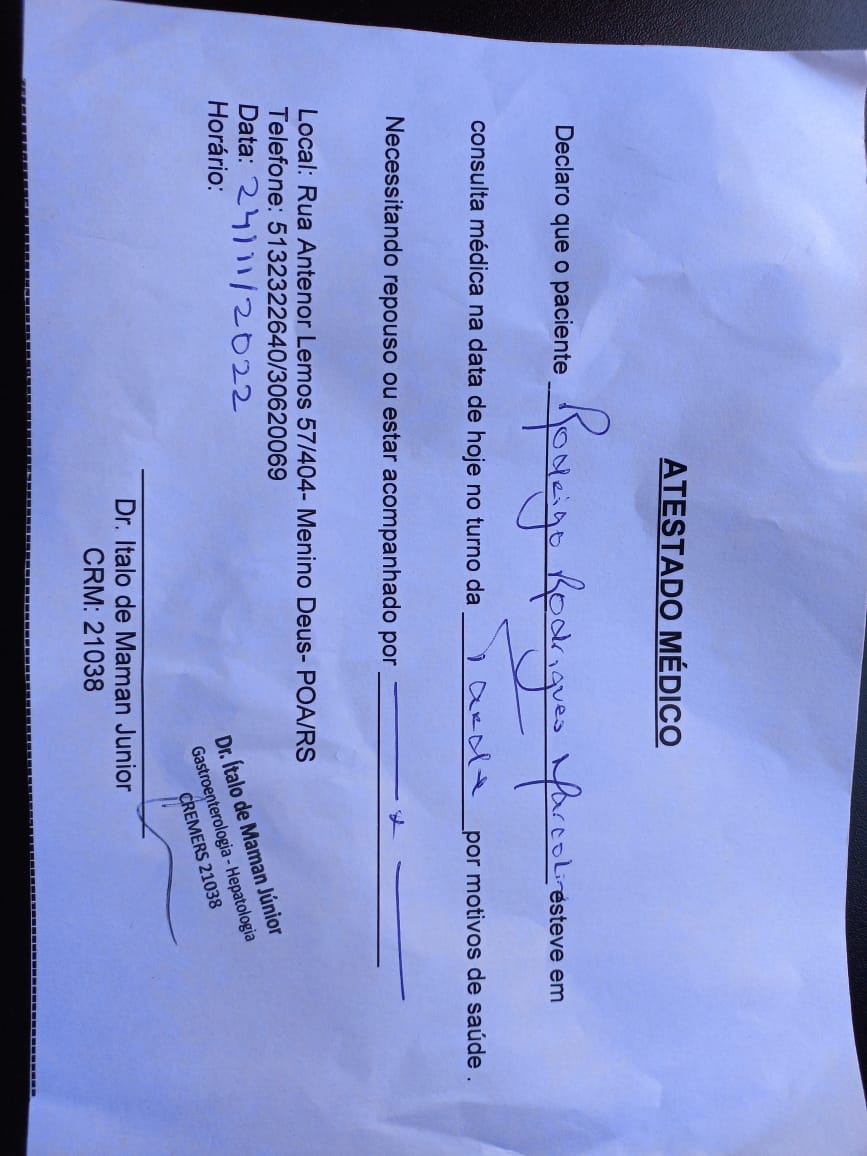 ATESTADO MÉDICO
Declaro que o paciente Rodrigo Rodrigues Marcolin esteve em
consulta médica na data de hoje no turno da Tarde por motivos de saúde .
Necessitando repouso ou estar acompanhado por
Local: Rua Antenor Lemos 57/404- Menino Deus- POA/RS
Telefone: 5132322640/30620069
Data: 24/11/2022
Horário:
Dr. Ítalo de Maman Júnior
Gastroenterologia - Hepatologia
CREMERS 21038
Dr. Italo de Maman Junior
CRM: 21038